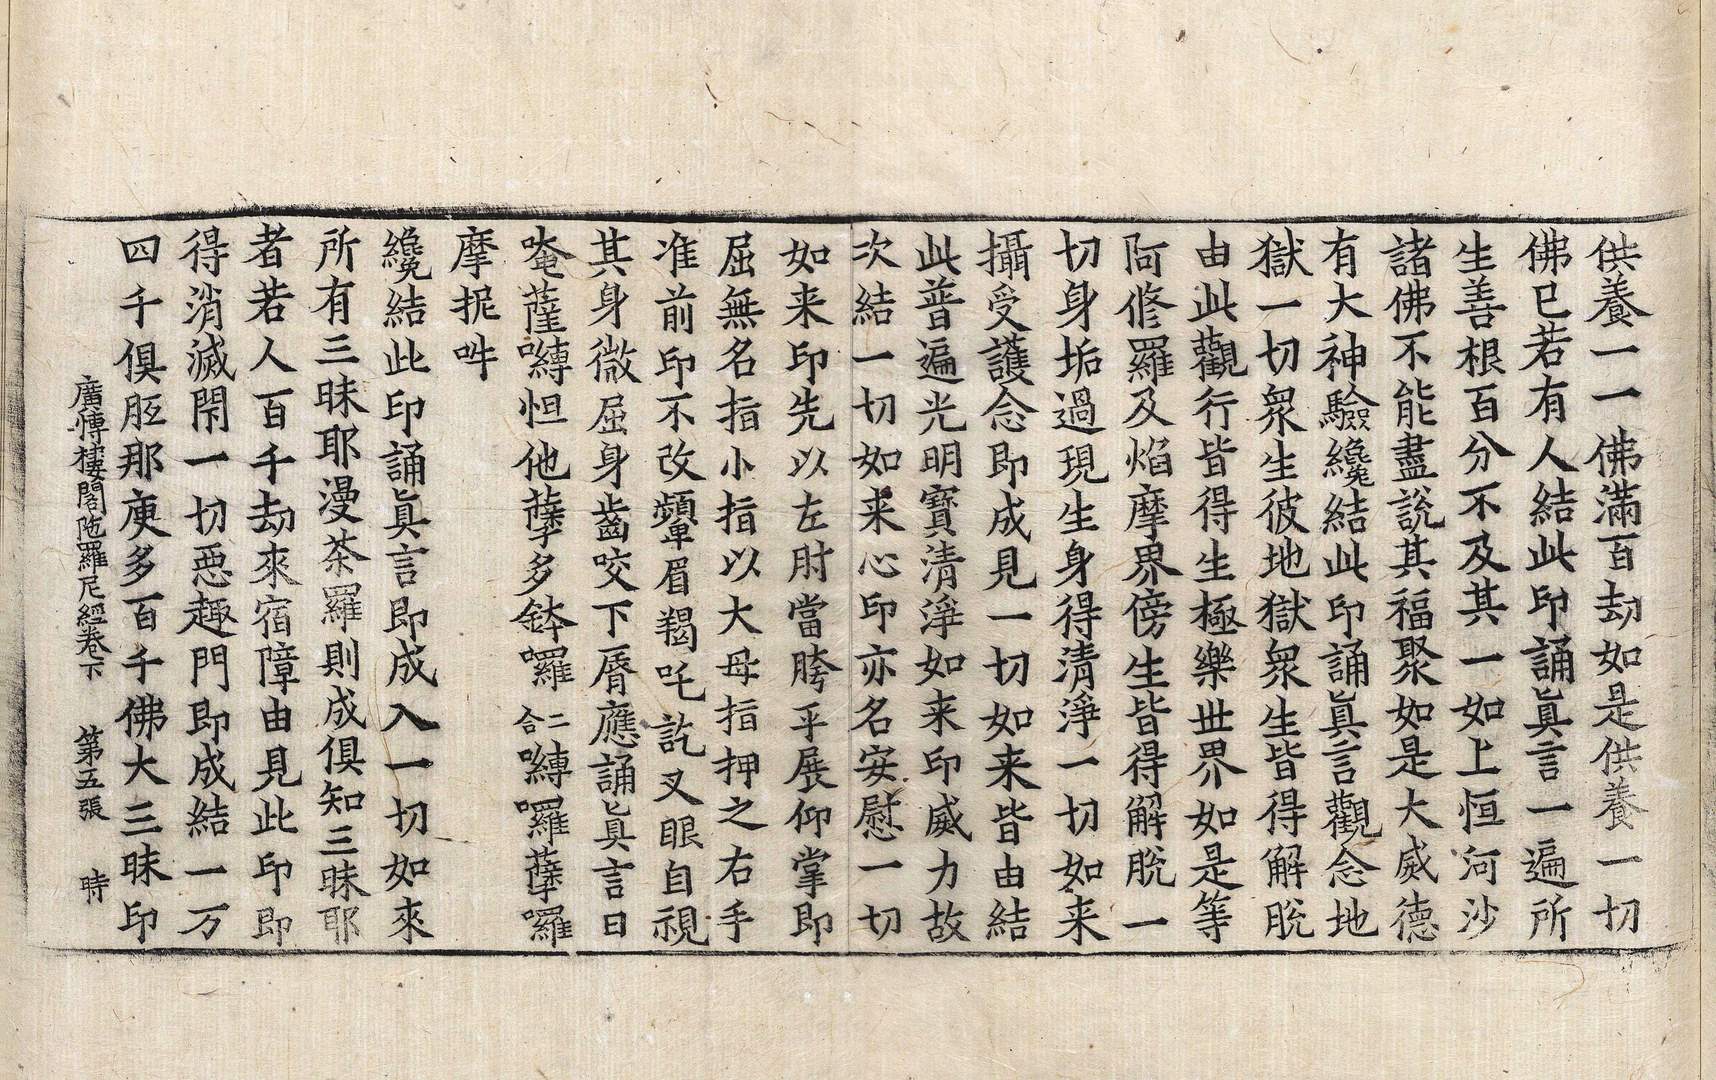 供養一一佛滿百劫如是供養一切
佛已若有人結此印誦眞言一遍所
生善根百分不及其一如上恒河沙
諸佛不能盡說其福聚如是大威德
有大神驗纔結此印誦眞言觀念地
獄一切衆生彼地獄衆生皆得解脫
由此觀行皆得生極樂世界如是等
阿修羅及焰摩界傍生皆得解脫一
切身垢過現生身得清淨一切如来
攝受護念即成見一切如来皆由結
此普遍光明寶清淨如来印威力故
次結一切如来心印亦名安慰一切
如来印先以左肘當胯乎展仰掌即
屈無名指小指以大母指押之右手
准前印不改顰眉羯吒訖叉眼自視
其身微屈身齒咬下脣應誦眞言曰
唵薩嚩怛他孽多鉢囉二合嚩囉孽囉
摩抳吽
纔結此印誦眞言即成入一切如來
所有三昧耶漫荼羅則成俱知三昧耶
者若人百千劫來宿障由見此印即
得消滅閇一切惡趣門即成結一万
四千俱胝那庾多百千佛大三昧印
廣博樓閣陁羅尼經卷下 第五張 時